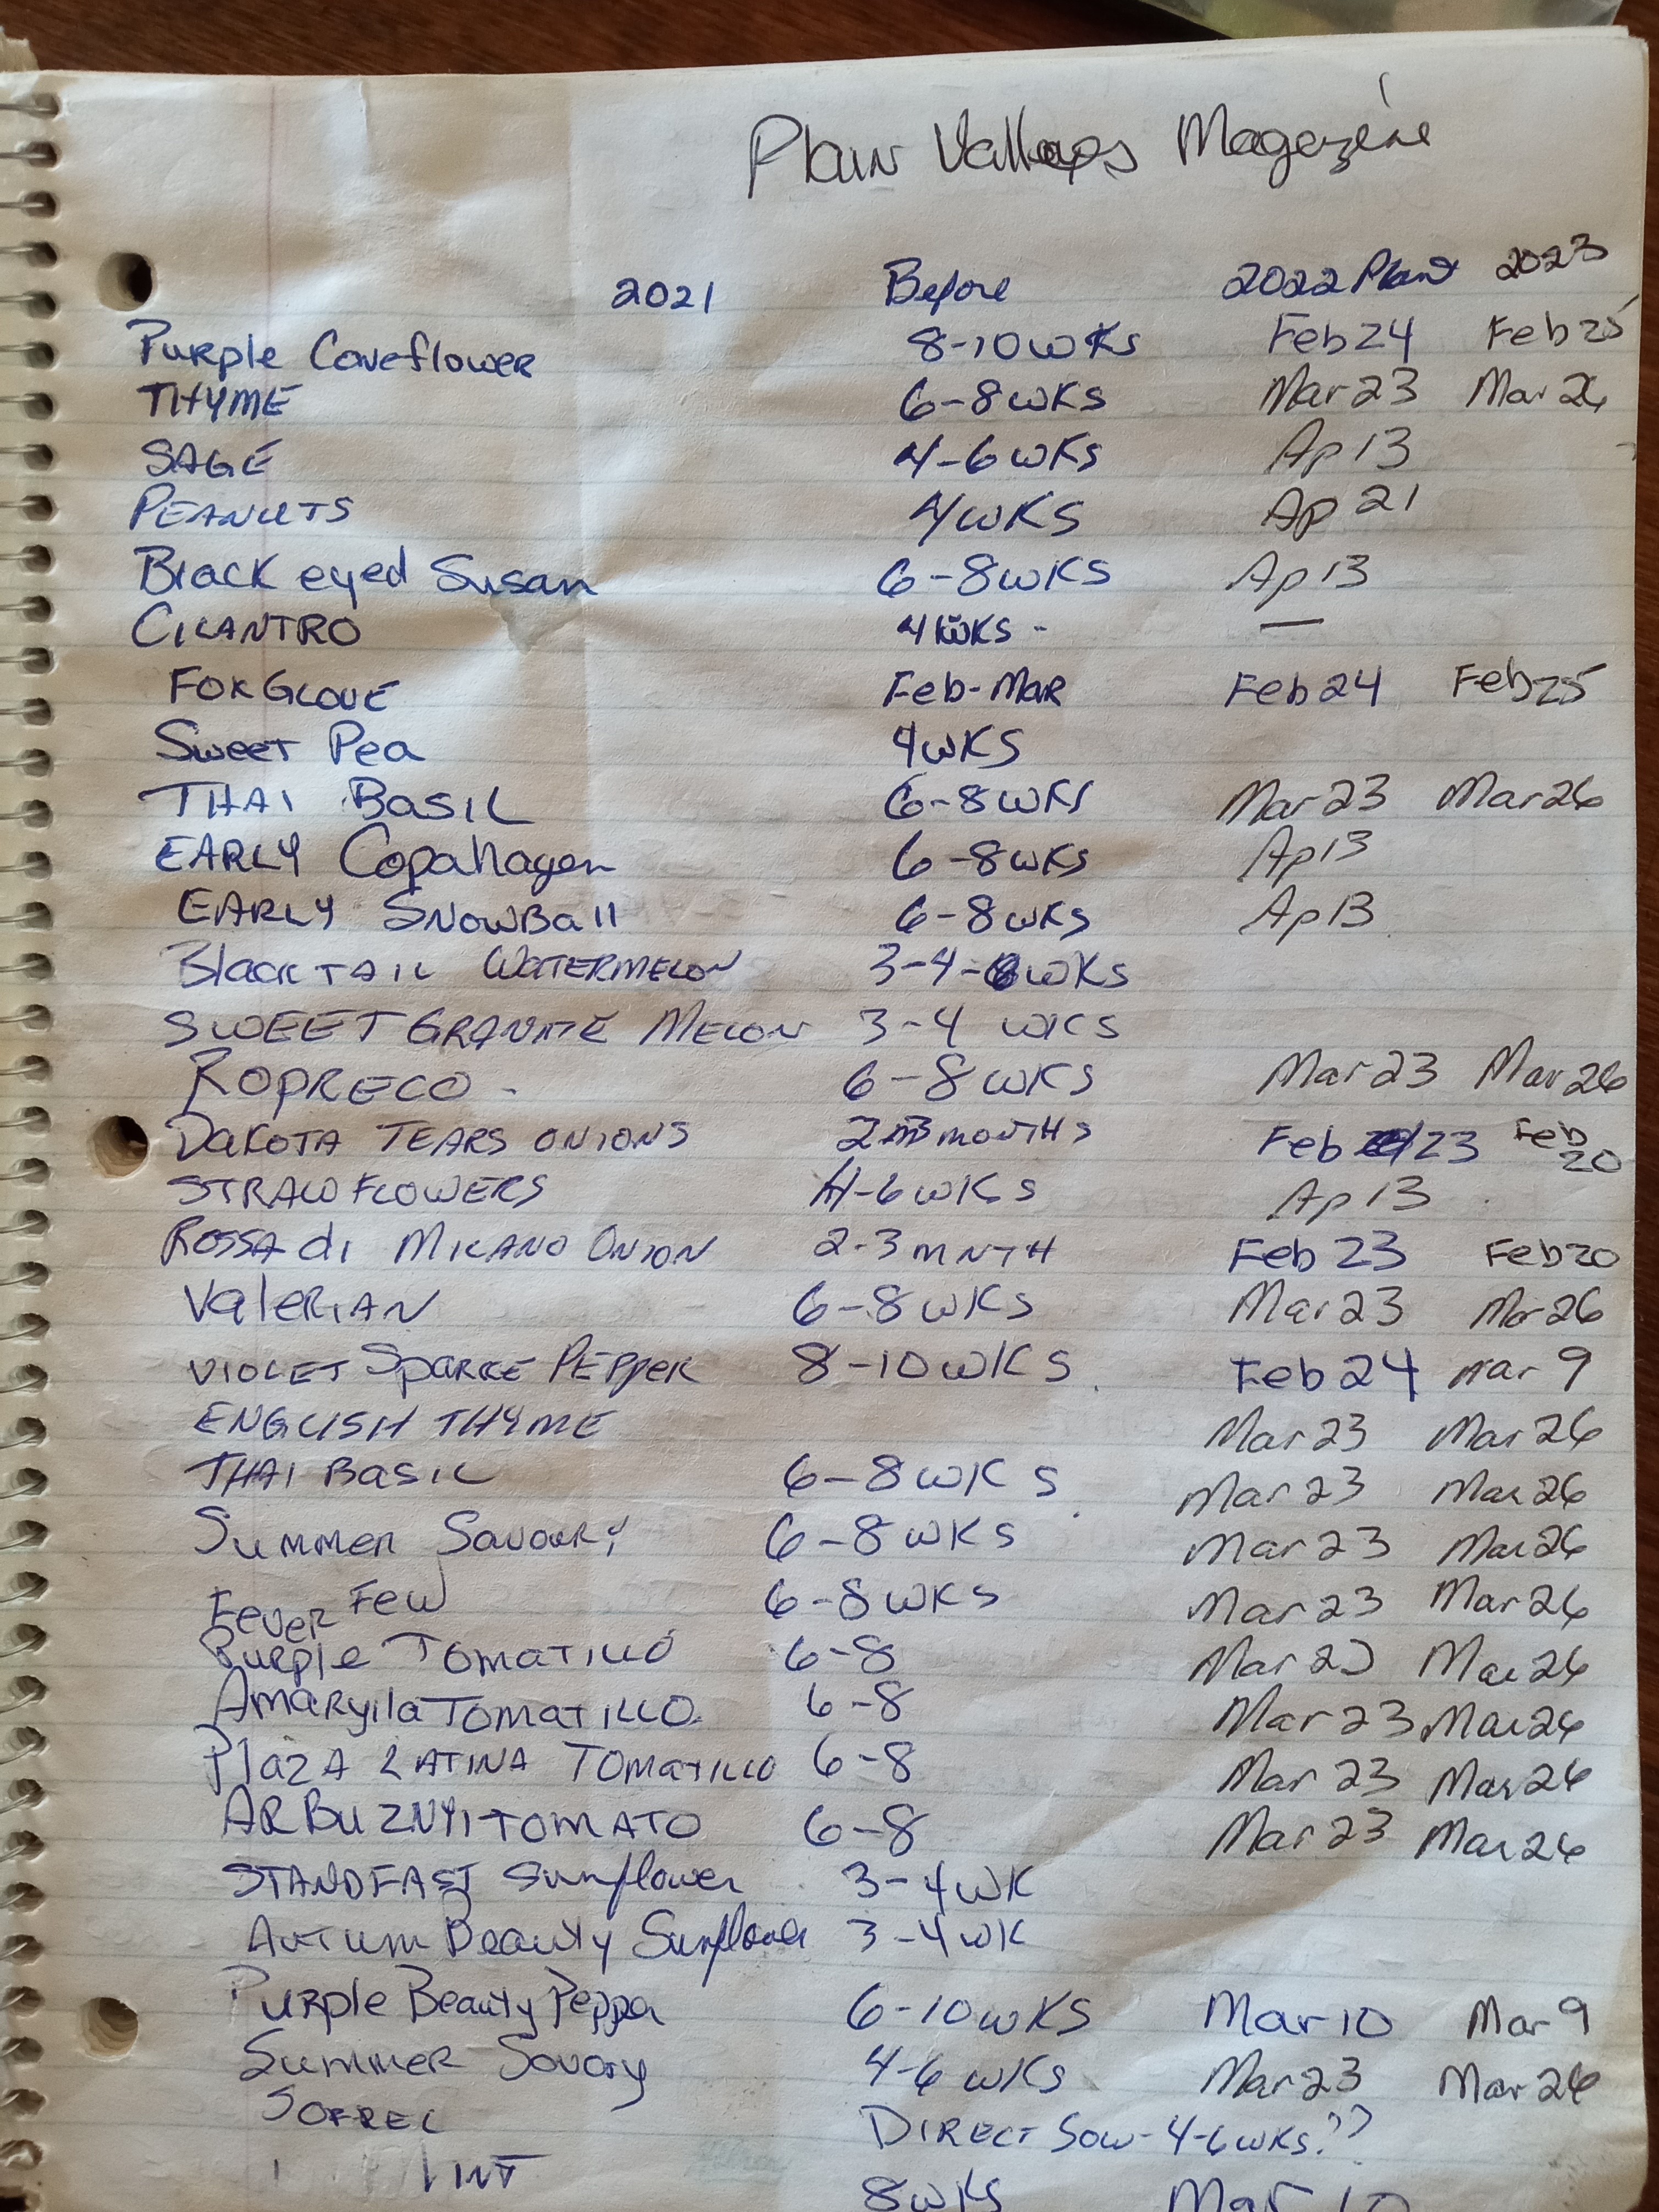 Plain Valleys Magazine
2021 Before 2022 Plant 2023
Purple Coneflower 8-10wks Feb 24 Feb 25
THYME 6-8wks Mar 23 Mar 26
SAGE 4-6wks Ap 13
PEANUTS 4wks Ap 21
Black eyed Susan 6-8wks Ap 13
CILANTRO 4wks - —
FOXGLOVE Feb-Mar Feb 24 Feb 25
Sweet Pea 4wks
THAI BASIL 6-8wks Mar 23 Mar 26
EARLY Copahagen 6-8wks Ap 13
EARLY SNOWBall 6-8wks Ap 13
Black TAIL WATERMELON 3-4-6wks
SWEET GRANITE MELON 3-4 wks
ROPRECO - 6-8wks Mar 23 Mar 26
DAKOTA TEARS ONIONS 2-3 MONTHS Feb 23 Feb 20
STRAWFLOWERS 4-6wks Ap 13
ROSSA di MILANO ONION 2-3 MNTH Feb 23 Feb 20
ValERIAN 6-8wks Mar 23 Mar 26
VIOLET SPARKE PEPPER 8-10wks Feb 24 Mar 9
ENGLISH THYME Mar 23 Mar 26
THAI BASIL 6-8wks Mar 23 Mar 26
SUMMER SAVOURY 6-8wks Mar 23 Mar 26
FEVER FEW 6-8wks Mar 23 Mar 26
Purple TOMATILLO 6-8 Mar 23 Mar 26
AMARYlla TOMATILLO 6-8 Mar 23 Mar 26
PlaZA LATINA TOMATILLO 6-8 Mar 23 Mar 26
ARBUZNYI TOMATO 6-8 Mar 23 Mar 26
STANDFAST Sunflower 3-4wk
AUTUM Beauty Sunflower 3-4wk
Purple Beauty Pepper 6-10wks Mar 10 Mar 9
SUMMER Savory 4-6wks Mar 23 Mar 26
SORREL DIRECT SOW - 4-6wks??
8wks Mar 10